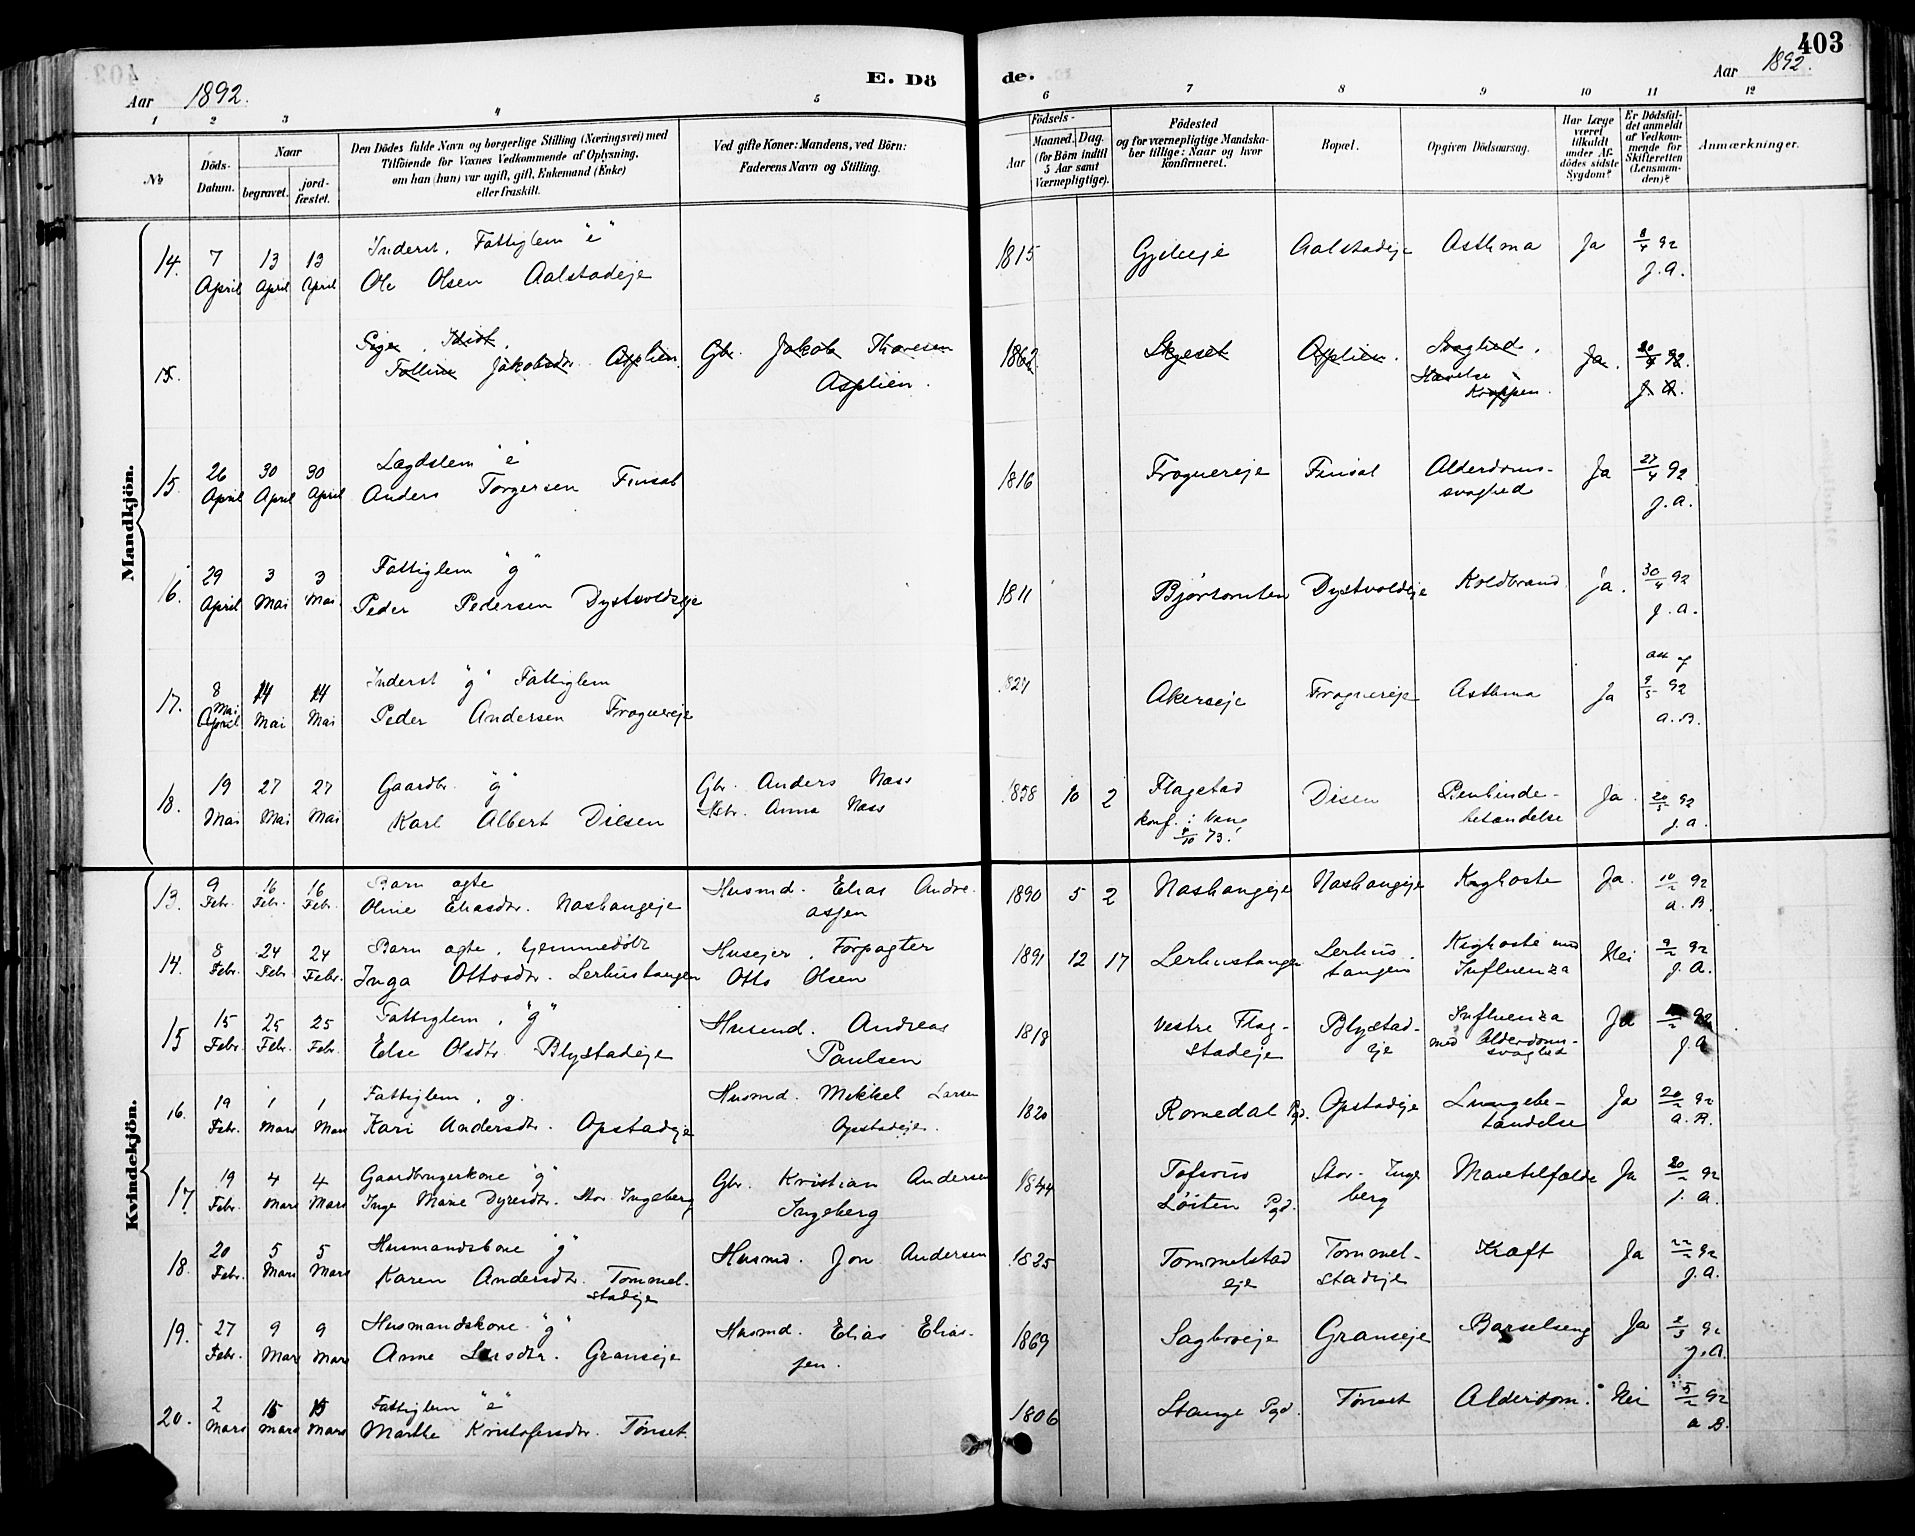 403
Aar 1892.
E. Dö
de.
Aar 1892.
1 2 3 4 5 6 7 8 9 10 11 12
No
Döds-Datum.
Naar
begravet.
jordfæstet.
Den Dödes fulde Navn og borgerlige Stilling (Næringsvei) med
Tilföiende for Voxnes Vedkommende af Oplysning,
om han (hun) var ugift, gift, Enkemand (Enke)
eller fraskilt.
Ved gifte Koner: Mandens, ved Börn:
Faderens Navn og Stilling.
Födsels-
Aar
Maaned. Dag.
(for Børn indtil
5 Aar samt
Værnepligtige).
Födested
og for værnepligtige Mandska-
ber tillige: Naar og hvor
konfirmeret.
Bopæl.
Opgiven Dödsaarsag.
Har Læge
været
tilkaldt
under Af-
dödes sidste
Sygdom?
Er Dödsfal-
det anmeldt
af Vedkom-
mende for
Skifteretten
(Lensman-
den)?
Anmærkninger.
Mandkjön.
14. 7 April 13 April 13 April
Inderst, Fattiglem "e"
Ole Olsen Aalstadeje
1815 Aalstadeje Asthma Ja 8/4 92
J. A.
15.
Pige,
Jakobsdr. Asplien Gbr. Jakob Thoresen
Asplien.
1862 Skjeset Asplien. Svaghed,
Ja. 30/4 92.
J. A.
15. 26 April 30 April 30 April
Lægdslem "e"
Anders Torgersen Finsal
1816 Frognereje Finsal Alderdoms-
svaghed
Ja 27/4 92
J. A.
16. 29 April 3 Mai 3 Mai
Fattiglem "g"
Peder Pedersen Dystvoldeje
1811 Dystvoldeje Koldbrand ja. 30/4 92
J. A.
17. 8 Mai April 14 Mai 14 Mai
Inderst "g" Fattiglem
Peder Andersen Frognereje
1827 Akerseje Frognereje Asthma Ja 9/5 92
A. B.
18. 19 Mai 27 Mai 27 Mai
Gaardbr. "g"
Karl Albert Disen
Gbr. Anders Næss
Anna Næss
1858 10 2 Flagstad
konf. i Vang
4/10 73!
Disen Benhinde-
betændelse
Ja. 20/5 92
J. A.
Kvindekjön.
13. 9 Febr. 16 Febr. 16 Febr.
Barn ægte
Oline Eliasdr. Næshangeje
Husmd. Elias Andre-
assen
1890 5 2 Næshangeje Næshangeje Kighoste Ja. 10/2 92
A. B.
14. 8 Febr. 24 Febr 24 Febr.
Barn ægte, hjemmedøbt
Inga Ottosdr. Lerhustangen
Husejer, Forpagter
Otto Olsen
1891 12 17 Lerhustangen Lerhus-
tangen
Kighoste med
Influenza
Nei 9/2 92
J. A.
15 15 Febr. 25 Febr. 25 Febr.
Fattiglem, "g"
Else Olsdtr. Blystadeje
Husmd. Andreas
Paulsen
1818 vestre Flag-
stadeje
Blystad-
eje
Influenza
med Alderdoms-
svaghed
Ja 92
J. A
16. 19 Febr. 1 Mars 1 Mars
Fattiglem, g.
Kari Andersdtr. Opstadeje
Husmd. Mikkel Larsen
Opstadeje.
1820 Romedal Pgd. Opstadeje Lungebe-
tændelse
Ja 20/2 92
A. B.
17. 19 Febr. 4 Mars 4 Mars
Gaardbrugerkone "g"
Inge Marie Dyresdtr. Stor Ingeberg
Gbr. Kristian Andersen
Ingeberg
1844 Løiten Pgd.
Stor-Inge
berg
Mavetilfælde Ja 20/2 92
J. A.
18. 20 Febr. 5 Mars 5 Mars
Husmandskone "g"
Karen Andersdtr. Tommel-
stadeje
Husmd. Jon Andersen
1825 Tommelstad
eje
Tommel-
stadeje
Kræft Ja 22/2 92
J. A.
19. 27 Febr. 9 Mars 9 Mars
Husmandskone "g"
Anne Larsdtr. Granseje
Husmd. Elias Elias-
sen.
1869 Sagbroeje Granseje Barselseng Ja 2/3 92
J. A.
20. 2 Mars 15 Mars 15 Mars
Fattiglem "e"
Marthe Kristofersdtr. Tønset.
1806 Stange Pgd. Tønset Alderdom. Nei 5/2 92
A B.